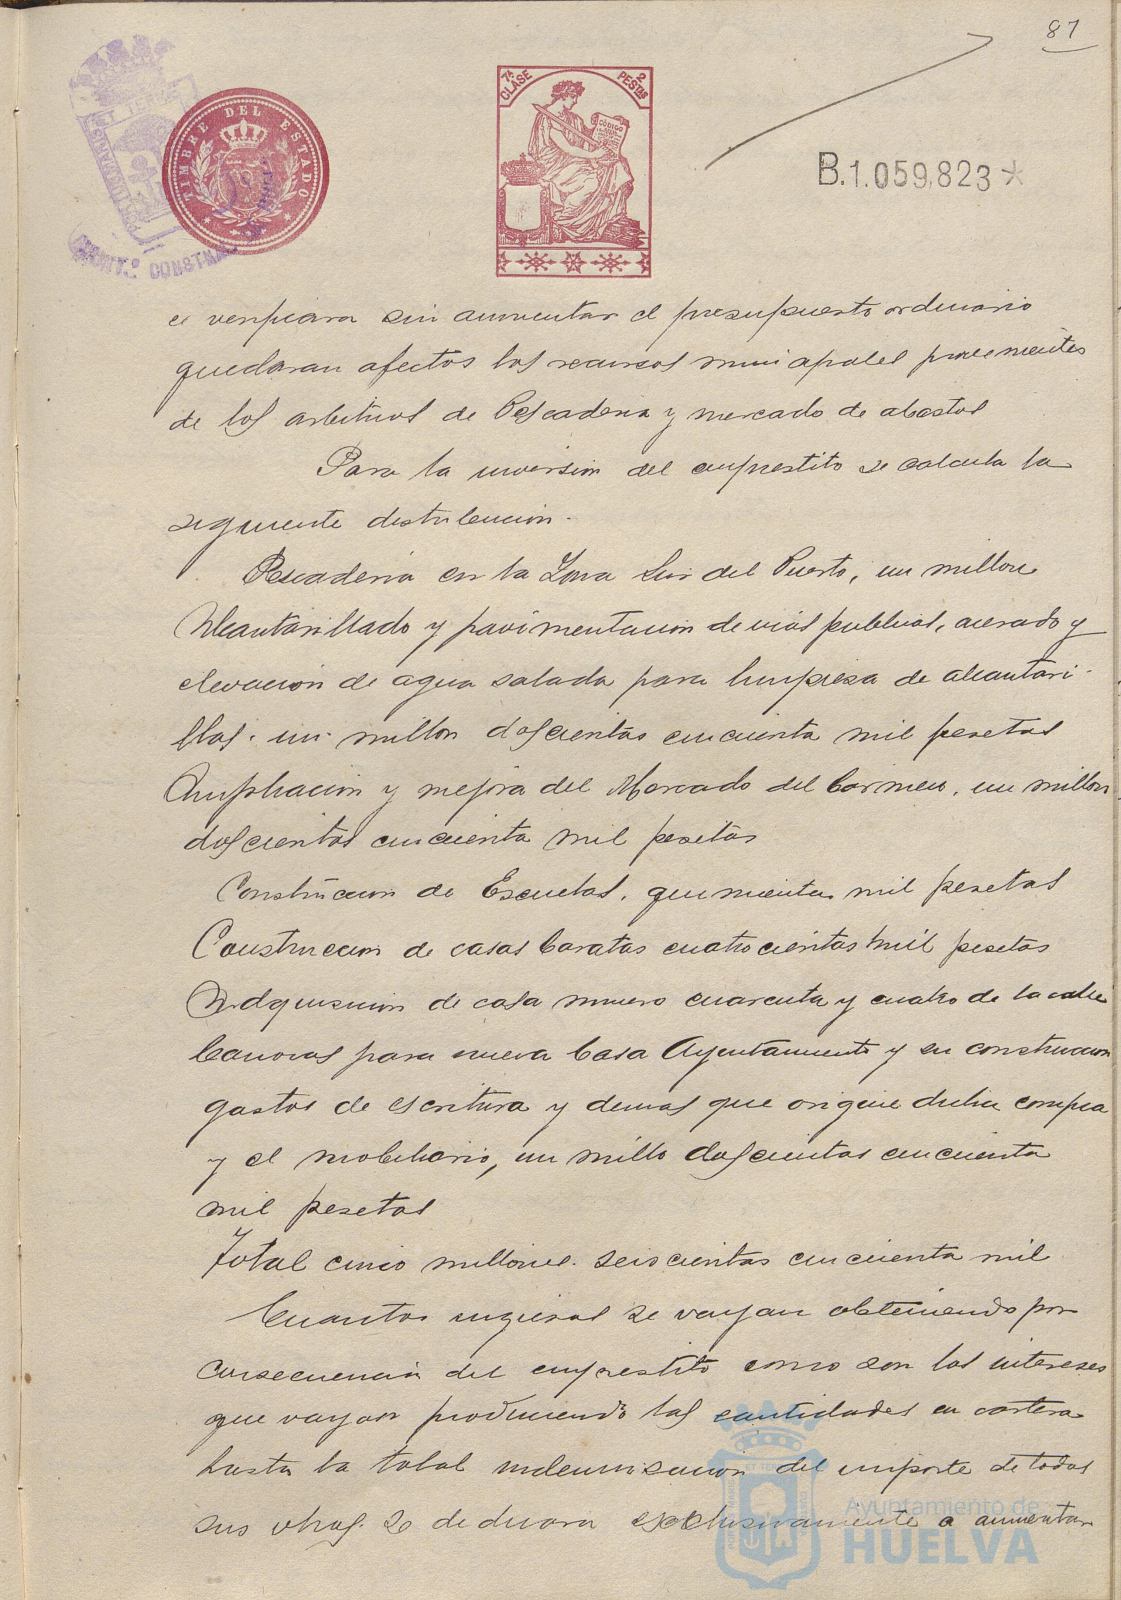 87
TIMBRE DEL ESTADO
7ª CLASE
2 PESTAS
CÓDIGO
CONSTNAL
B.1.059,823*
se verificara sin aumentar el presupuesto ordinario
quedaran afectos los recursos municipales provenientes
de los arbitrios de Pescaderia y mercado de abastos
Para la inversion del emprestito se calcula la
siguiente distribucion.
Pescaderia en la Zona Sur del Puerto, un millon
Alcantarillado y pavimentacion de vias publicas, acerado y
elevacion de agua salada para limpieza de alcantari-
llas. un millon doscientas cincuenta mil pesetas
Ampliacion y mejora del Mercado del Carmen, un millon
doscientas cincuenta mil pesetas
Construccion de Escuelas, quinientas mil pesetas
Construccion de casas baratas cuatrocientas mil pesetas
Adquisicion de casa numero cuarenta y cuatro de la calle
Canovas para nueva Casa Ayuntamiento y su construccion
gastos de escritura y demas que origine dicha compra
y el mobiliario, un millo doscientas cincuenta
mil pesetas
Total cinco millones seiscientas cincuenta mil
Cuantos ingresos se vayan obteniendo por
consecuencia del emprestito como son los intereses
que vayan produciendo las cantidades en cartera
hasta la total indemnisacion del importe de todas
sus obras se dedicara exclusivamente a aumentar
Ayuntamiento de
HUELVA